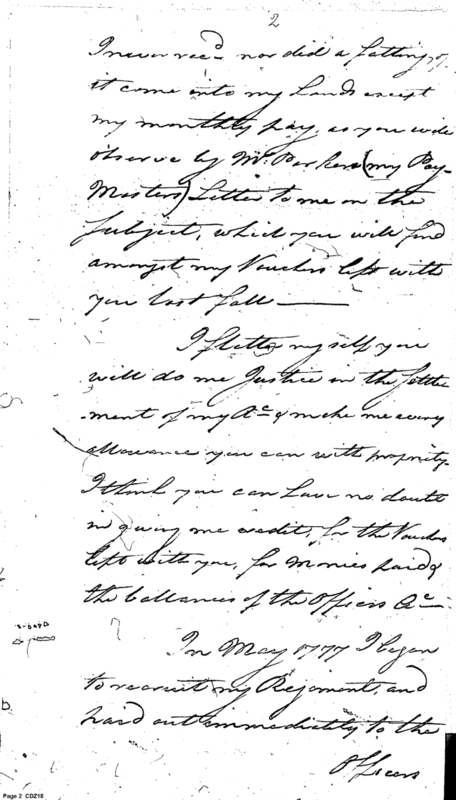 2
I never rec.d nor did a fathing of
it come into my hands except
my monthly pay, as you will
observe by Mr. Parkers (my Pay-
Masters) Letter to me on the
Subject, which you will find
amongst my Vouchers left with
you last fall
I flatter myself you
will do me Justice in the settle
-ment of my Acc. & make me every
allowance you can with propriety.
I think you can have no doubt
in giving me credit, for the Vouchers
left with you, for Monies paid &
the ballances of the Officers Acc.
In May 1777 I began
to recruit my Regiment, and
paid out immediately to the
Officers
Page 2 CDZ18